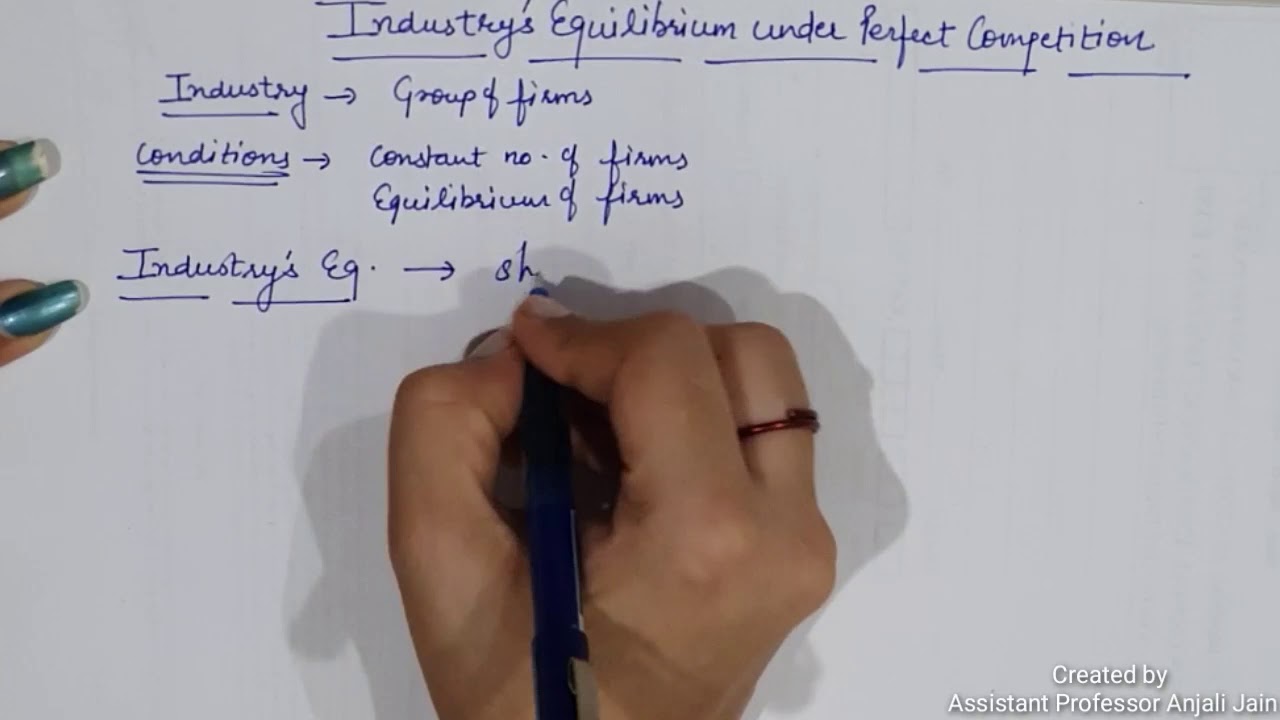 Industry's Equilibrium under Perfect Competition
Industry → Group of firms
Conditions → Constant no. of firms
Equilibrium of firms
Industry's Eq. → sh
Created by
Assistant Professor Anjali Jain